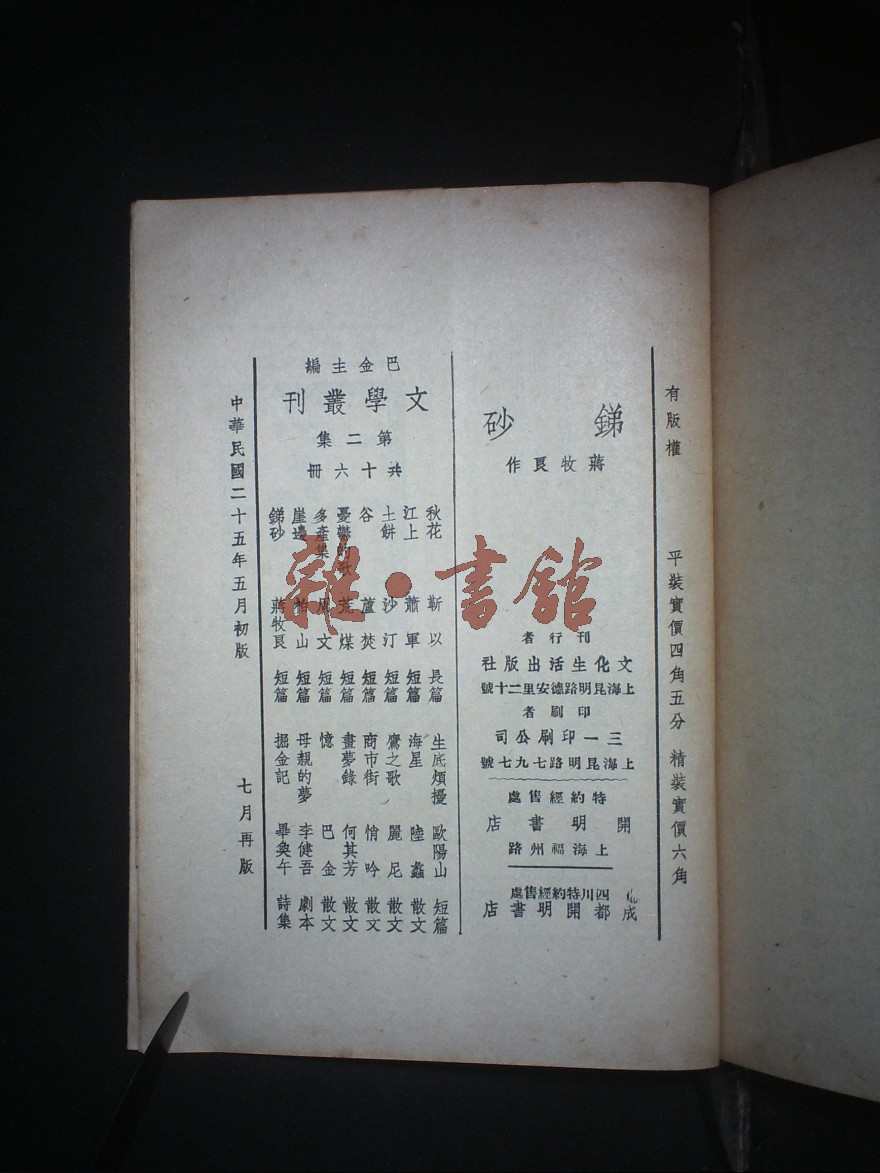 有版權
平裝實價四角五分
精裝實價六角
銻砂
蔣牧良作
刊行者
文化生活出版社
上海昆明路德安里二十號
印刷者
三一印刷公司
上海昆明路七九七號
特約經售處
開明書店
上海福州路
四川特約經售處
成都開明書店
巴金主編
文學叢刊
第二集
共十六冊
秋花 靳以 長篇
江上 蕭軍 短篇
土餅 沙汀 短篇
谷 蘆焚 短篇
憂鬱的歌 荒煤 短篇
多產集 周文 短篇
崖邊 柏山 短篇
銻砂 蔣牧良 短篇
生底煩擾 歐陽山 短篇
海星 陸蠡 散文
鷹之歌 麗尼 散文
商市街 悄吟 散文
畫夢錄 何其芳 散文
憶 巴金 散文
母親的夢 李健吾 劇本
掘金記 畢奐午 詩集
中華民國二十五年五月初版
七月再版
雜·書館